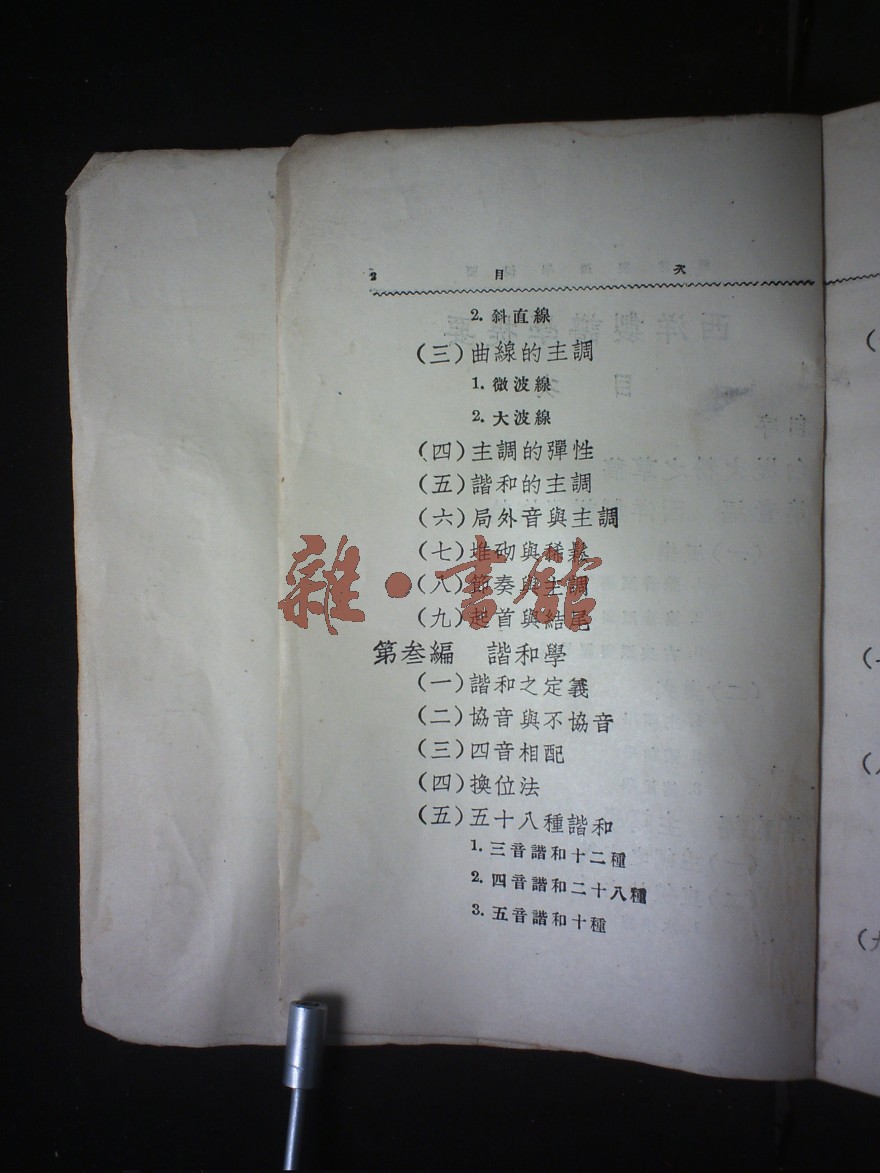 2 目 次
2. 斜直線
(三)曲線的主調
1. 微波線
2. 大波線
(四)主調的彈性
(五)諧和的主調
(六)局外音與主調
(七)堆砌與稀鬆
(八)節奏與主調
(九)起首與結尾
雜·書館
第叁編 諧和學
(一)諧和之定義
(二)協音與不協音
(三)四音相配
(四)換位法
(五)五十八種諧和
1. 三音諧和十二種
2. 四音諧和二十八種
3. 五音諧和十種